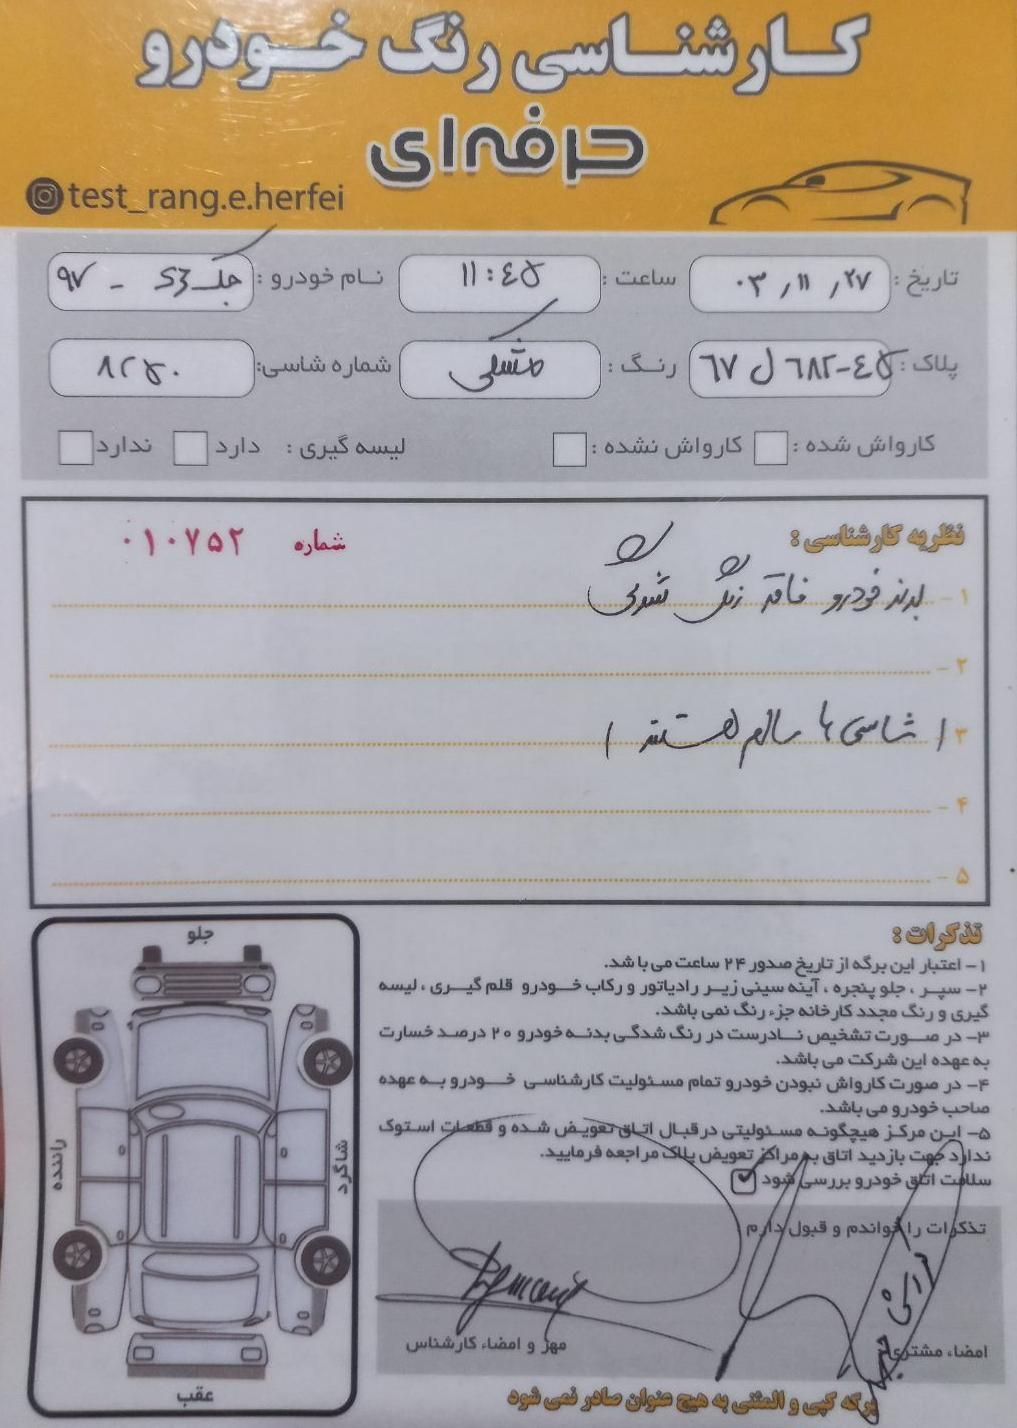 کارشناسی رنگ خودرو
حرفه‌ای
test_rang.e.herfei
تاریخ : ۰۳/۱۱/۲۷ ساعت : ۱۱:۴۵ نام خودرو : جک S3 - ۹۷
پلاک : ۴۵-۶۸۲ ل ۶۷ رنگ : مشکی شماره شاسی: ۸۲۵۰
کارواش شده : کارواش نشده : لیسه گیری : دارد ندارد
نظریه کارشناسی : شماره ۰۱۰۷۵۲
۱- بدنه خودرو فاقد رنگ شدگی
۲-
۳ ( شاسی ها سالم هستند )
۴-
۵-
تذکرات :
۱- اعتبار این برگه از تاریخ صدور ۲۴ ساعت می باشد.
۲- سپر ، جلو پنجره ، آینه سینی زیر رادیاتور و رکاب خودرو قلم گیری ، لیسه
گیری و رنگ مجدد کارخانه جزء رنگ نمی باشد.
۳- در صورت تشخیص نادرست در رنگ شدگی بدنه خودرو ۲۰ درصد خسارت
به عهده این شرکت می باشد.
۴- در صورت کارواش نبودن خودرو تمام مسئولیت کارشناسی خودرو به عهده
صاحب خودرو می باشد.
۵- این مرکز هیچگونه مسئولیتی در قبال اتاق تعویض شده و قطعات استوک
ندارد جهت بازدید اتاق به مراکز تعویض پلاک مراجعه فرمایید.
سلامت اتاق خودرو بررسی شود
تذکرات را خواندم و قبول دارم
امضاء مشتری مهر و امضاء کارشناس
برگه کپی و المثنی به هیچ عنوان صادر نمی شود
جلو
راننده
شاگرد
عقب